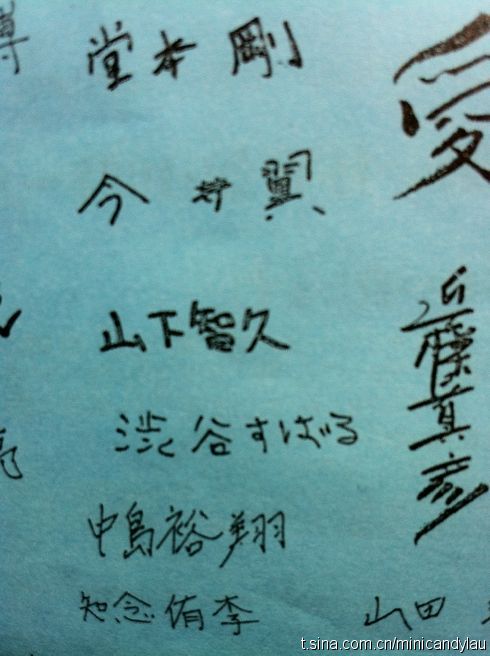 堂本 剛
今井翼
山下智久
渋谷すばる
中島裕翔
知念侑李
愛
近藤真彦
山田
t.sina.com.cn/minicandylau